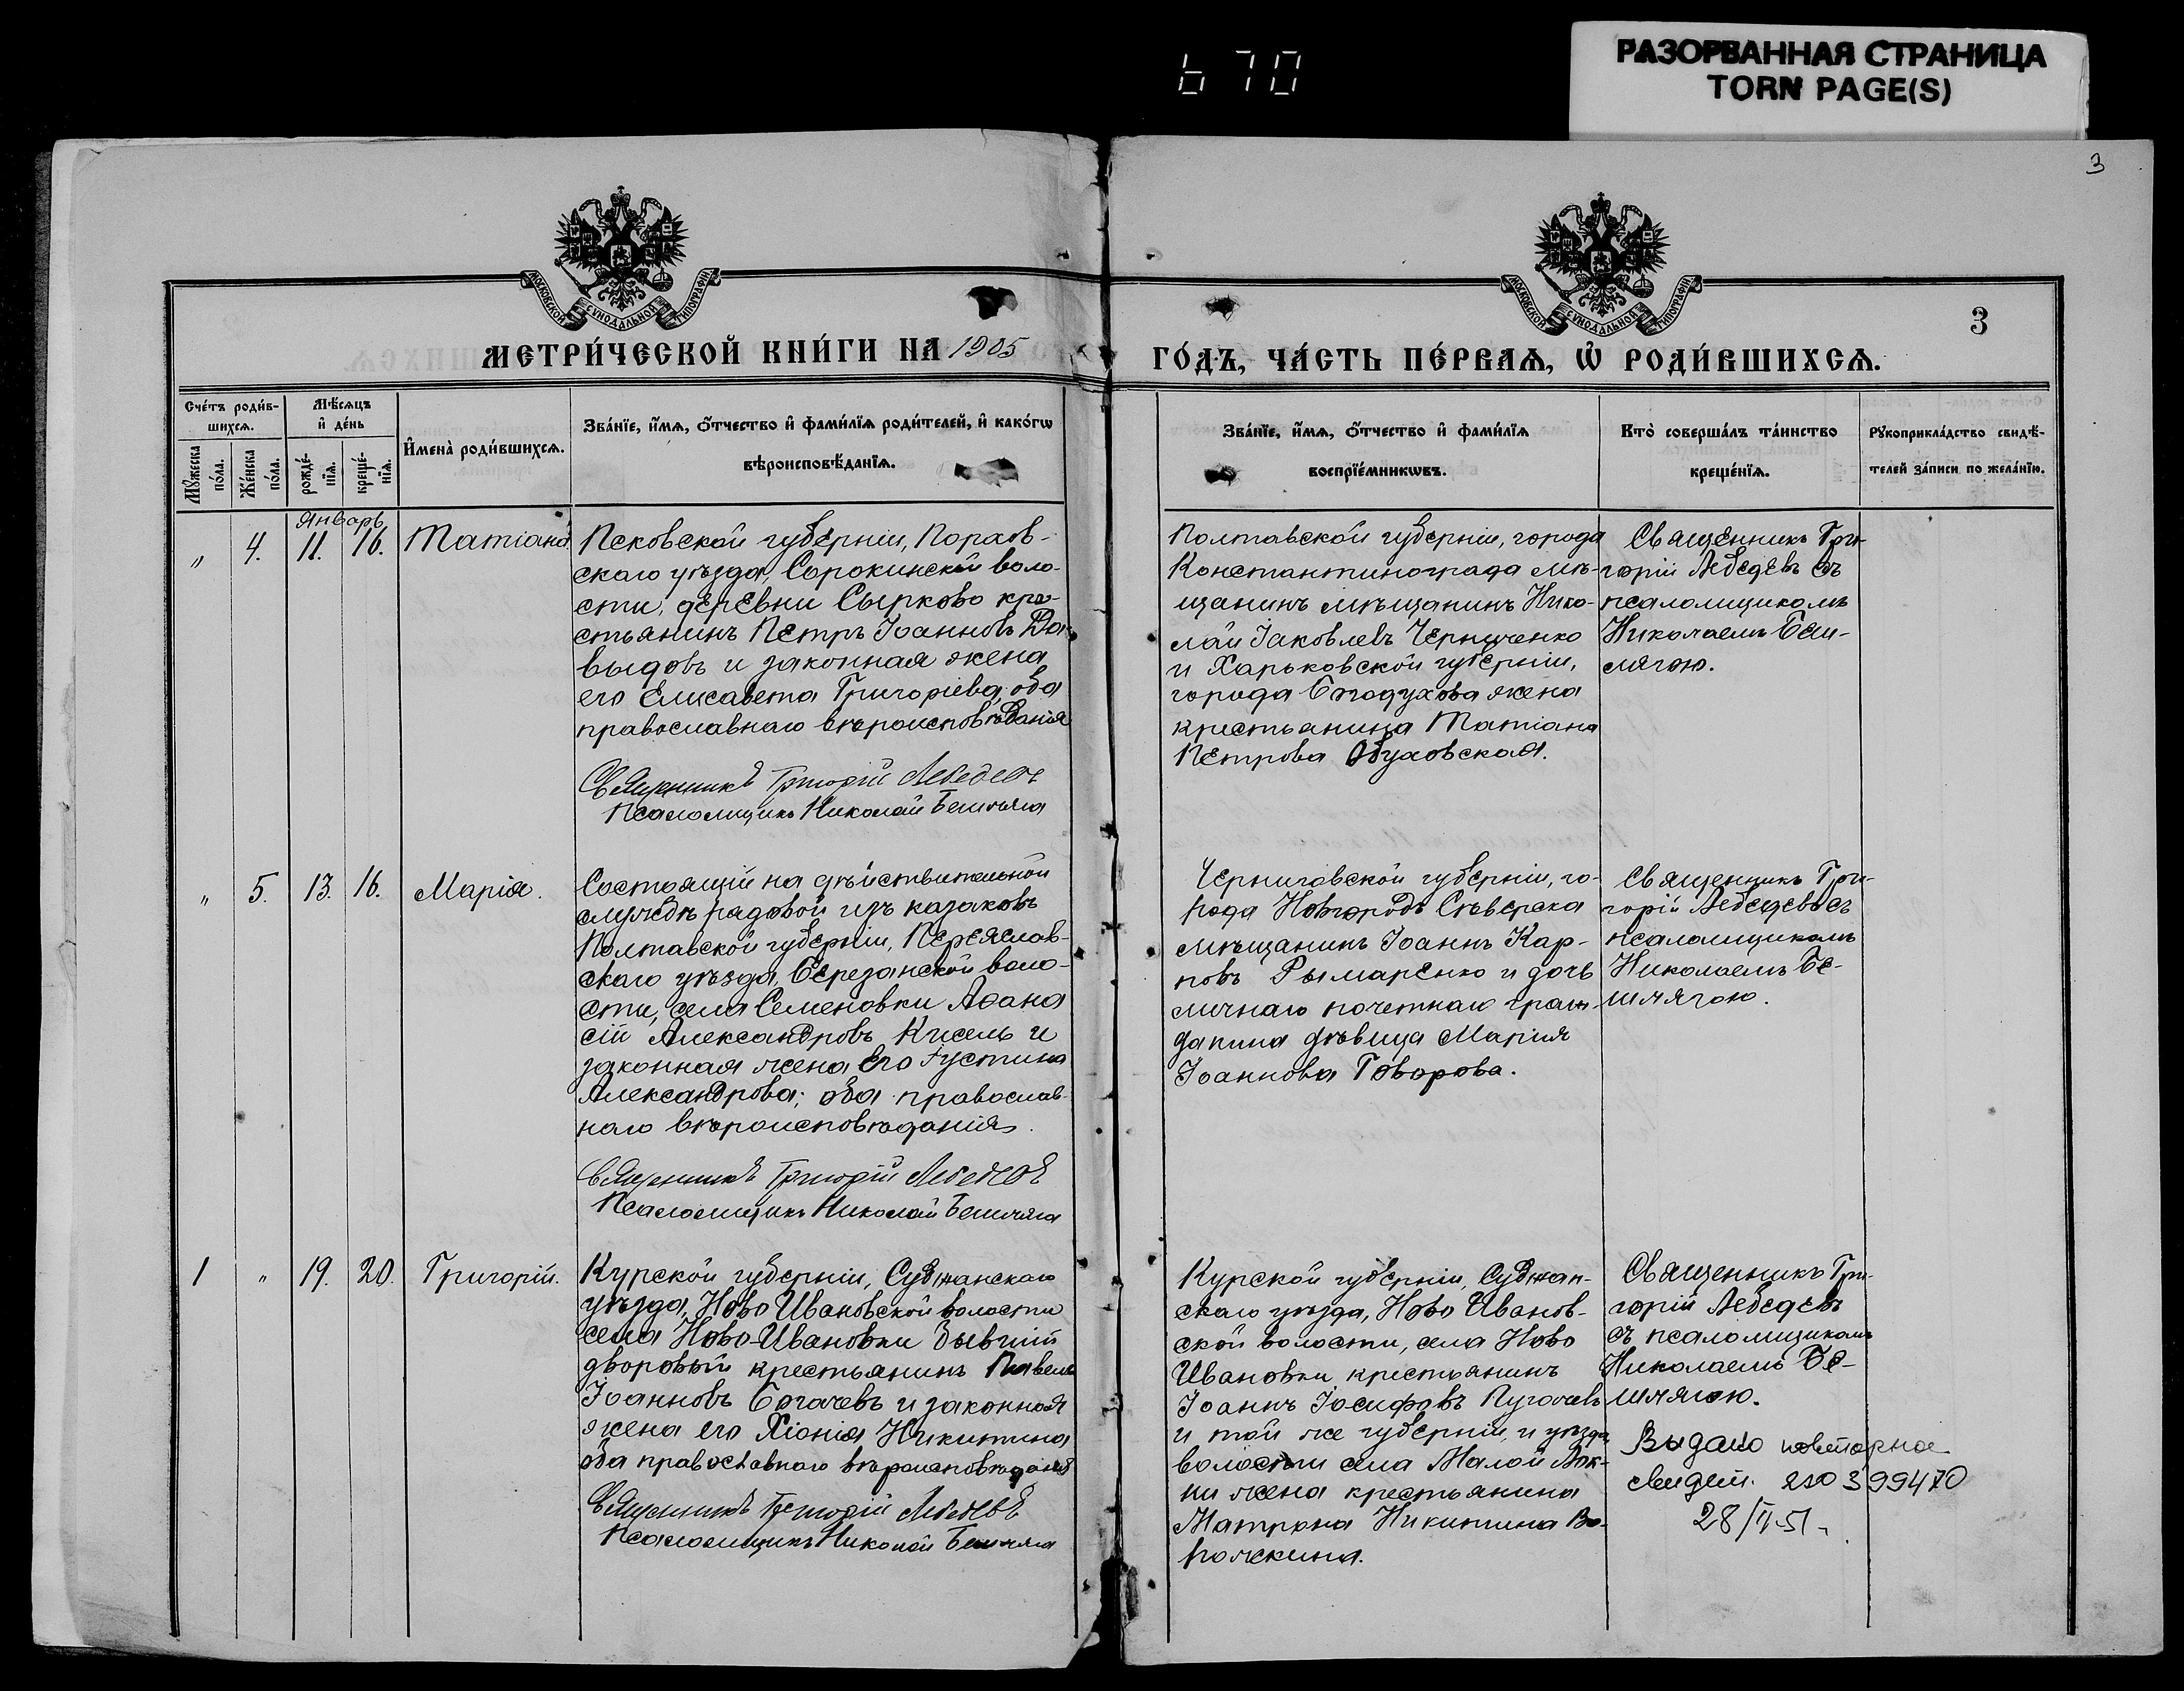 670
РАЗОРВАННАЯ СТРАНИЦА
TORN PAGE(S)
3
МОСКОВСКОЙ СѴНОДАЛЬНОЙ ТИПОГРАФІИ
МОСКОВСКОЙ СѴНОДАЛЬНОЙ ТИПОГРАФІИ
3
МЕТРИ́ЧЕСКОЙ КНИ́ГИ НА 1905
ГО́ДЪ, ЧА́СТЬ ПЕ́РВАѦ, Ѡ҆ РОДИ́ВШИХСѦ.
Сче́тъ роди́в-
шихсѧ.
Мꙋ́жеска по́ла.
Же́нска по́ла.
Мѣ́сѧцъ
и҆ де́нь
рожде́-
нїѧ.
креще́-
нїѧ.
И҆мена̀ роди́вшихсѧ.
Зва́нїе, и҆́мѧ, ѻ҆́тчество и҆ фами́лїѧ роди́телей, и҆ како́гѡ
вѣроисповѣ́данїѧ.
Зва́нїе, и҆́мѧ, ѻ҆́тчество и҆ фами́лїѧ
воспрїе́мникѡвъ.
Кто̀ соверша́лъ та́инство
креще́нїѧ.
Рꙋкоприкла́дство свидѣ́-
телей за́писи по жела́нїю.
Январь
" 4. 11. 16. Татіана
Псковской губерніи, Порхов-
скаго уѣзда, Сорокинской воло-
сти, деревни Сырково кре-
стьянинъ Петръ Іоанновъ Да-
выдовъ и законная жена
его Елисавета Григоріева; оба
православнаго вѣроисповѣданія
Священникъ Григорій Лебедевъ
Псаломщикъ Николай Бешляга
Полтавской губерніи, города
Константинограда мѣ-
щанинъ мѣщанинъ Нико-
лай Іаковлевъ Чернученко
и Харьковской губерніи,
города Богодухова жена
крестьянина Татіана
Петрова Обуховская.
Священникъ Гри-
горій Лебедевъ съ
псаломщикомъ
Николаемъ Беш-
лягою.
" 5. 13. 16. Марія.
Состоящій на дѣйствительной
службѣ рядовой изъ казаковъ
Полтавской губерніи, Переяслав-
скаго уѣзда, Березанской воло-
сти, села Семеновки Аѳана
сій Александровъ Кисель и
законная жена его Іустина
Александрова; оба православ-
наго вѣроисповѣданія.
Священникъ Григорій Лебедевъ
Псаломщикъ Николай Бешляга
Черниговской губерніи, го-
рода Новгородъ Сѣверска
мѣщанинъ Іоаннъ Кар-
повъ Рымаренко и дочь
личнаго почетнаго граж-
данина дѣвица Марія
Іоаннова Говорова.
Священникъ Гри-
горій Лебедевъ съ
псаломщикомъ
Николаемъ Бе-
шлягою.
1 " 19. 20. Григорій.
Курской губерніи, Суджанскаго
уѣзда, Ново Ивановской волости
села Ново-Ивановки бывшій
дворовый крестьянинъ Павелъ
Іоанновъ Богачевъ и законная
жена его Хіонія Никитина
оба православнаго вѣроисповѣданія
Священникъ Григорій Лебедевъ
Псаломщикъ Николай Бешляга
Курской губерніи, Суджан-
скаго уѣзда, Ново Иванов-
ской волости, села Ново
Ивановки крестьянинъ
Іоаннъ Іосифовъ Пугачевъ
и той же губерніи, и уѣзда
волости села Малой Лок-
ни жена крестьянина
Матрона Никитина Во-
рожкина.
Священникъ Гри-
горій Лебедевъ
съ псаломщикомъ
Николаемъ Бе-
шлягою.
Выдано повторное
свидет. 399470
28/V-51